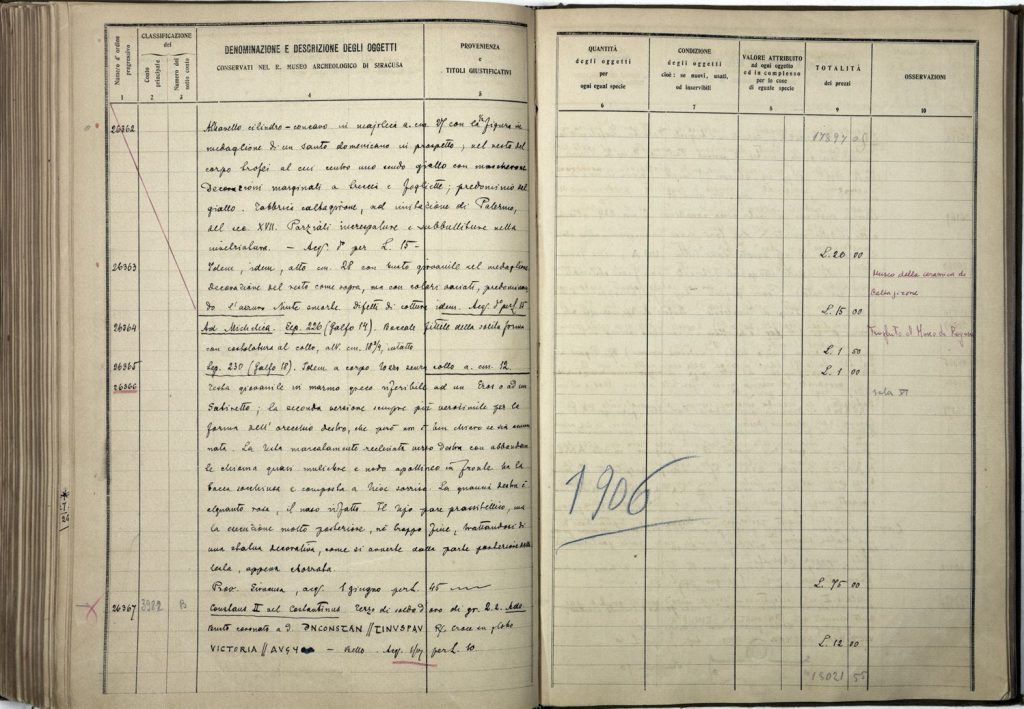 Numero d'ordine progressivo
CLASSIFICAZIONE
del
Conto principale
Numero del sotto conto
DENOMINAZIONE E DESCRIZIONE DEGLI OGGETTI
CONSERVATI NEL R. MUSEO ARCHEOLOGICO DI SIRACUSA
PROVENIENZA
e
TITOLI GIUSTIFICATIVI
1 2 3 4 5
26362 Albarello cilindro-concavo in majolica a. cm. 27 con la figura in
medaglione di un santo domenicano in prospetto; nel resto del
corpo trofei al cui centro uno scudo giallo con mascherone
Decorazioni marginali a treccia e fogliette; predominio del
giallo. Fabbrica caltagirone, ad imitazione di Palermo,
del sec. XVII. Parziali increspature e subbulliture nella
vinetriatura. - Acq. per L. 15-
26363 Idem, idem, alto cm. 28 con busto giovanile nel medaglione
Decorazione del resto come sopra, ma con colori variati, predominan
do l'azzurro. Difetti di cottura idem. Acq. per L. 15
26364 Ad Michelica. Sep. 226 (Galfo 14). Boccale fittile della solita forma
con costolatura al collo, alt. cm. intatto
26365 Sep. 230 (Galfo 18). Idem a corpo senza collo a. cm. 12.
26366 Testa giovanile in marmo greco riferibile ad un Eros o ad un
Satiretto; la seconda versione sempre più verosimile per la
forma dell'orecchio destro, che però non è ben chiaro se sia
La testa marcatamente reclinata verso destra con abbondan
te chioma quasi muliebre e nodo apollineo in fronte ha la
bocca conchiusa e composta a lieve sorriso. La guancia destra è
alquanto rosa, il naso rifatto. Il tipo pare prassitelico, ma
la esecuzione molto posteriore, nè troppo fine, trattandosi di
una statua decorativa, come si avverte dalla parte posteriore della
testa, appena abozzata.
Prov. Siracusa, acq. 1 giugno per L. 45
26367 3982 B Constans II et Costantinus. Terzo di soldo d'oro di gr. 2.2.
Busto coronato a d. DNCONSTAN//TINUSPAV R/. Croce su globo
VICTORIA//AVGU - Bello. Acq. per L. 10.
QUANTITÀ
degli oggetti
per
ogni egual specie
CONDIZIONE
degli oggetti
cioè: se nuovi, usati,
od inservibili
VALORE ATTRIBUITO
ad ogni oggetto
od in complesso
per le cose
di eguale specie
TOTALITÀ
dei prezzi
OSSERVAZIONI
6 7 8 9 10
L. 20 00
Museo della ceramica di
Caltagirone
L. 15 00
Trasferito al Museo di Ragusa
L. 1 50
L. 1 00
sala VI
1906
L. 75 00
L. 12 00
18021 55